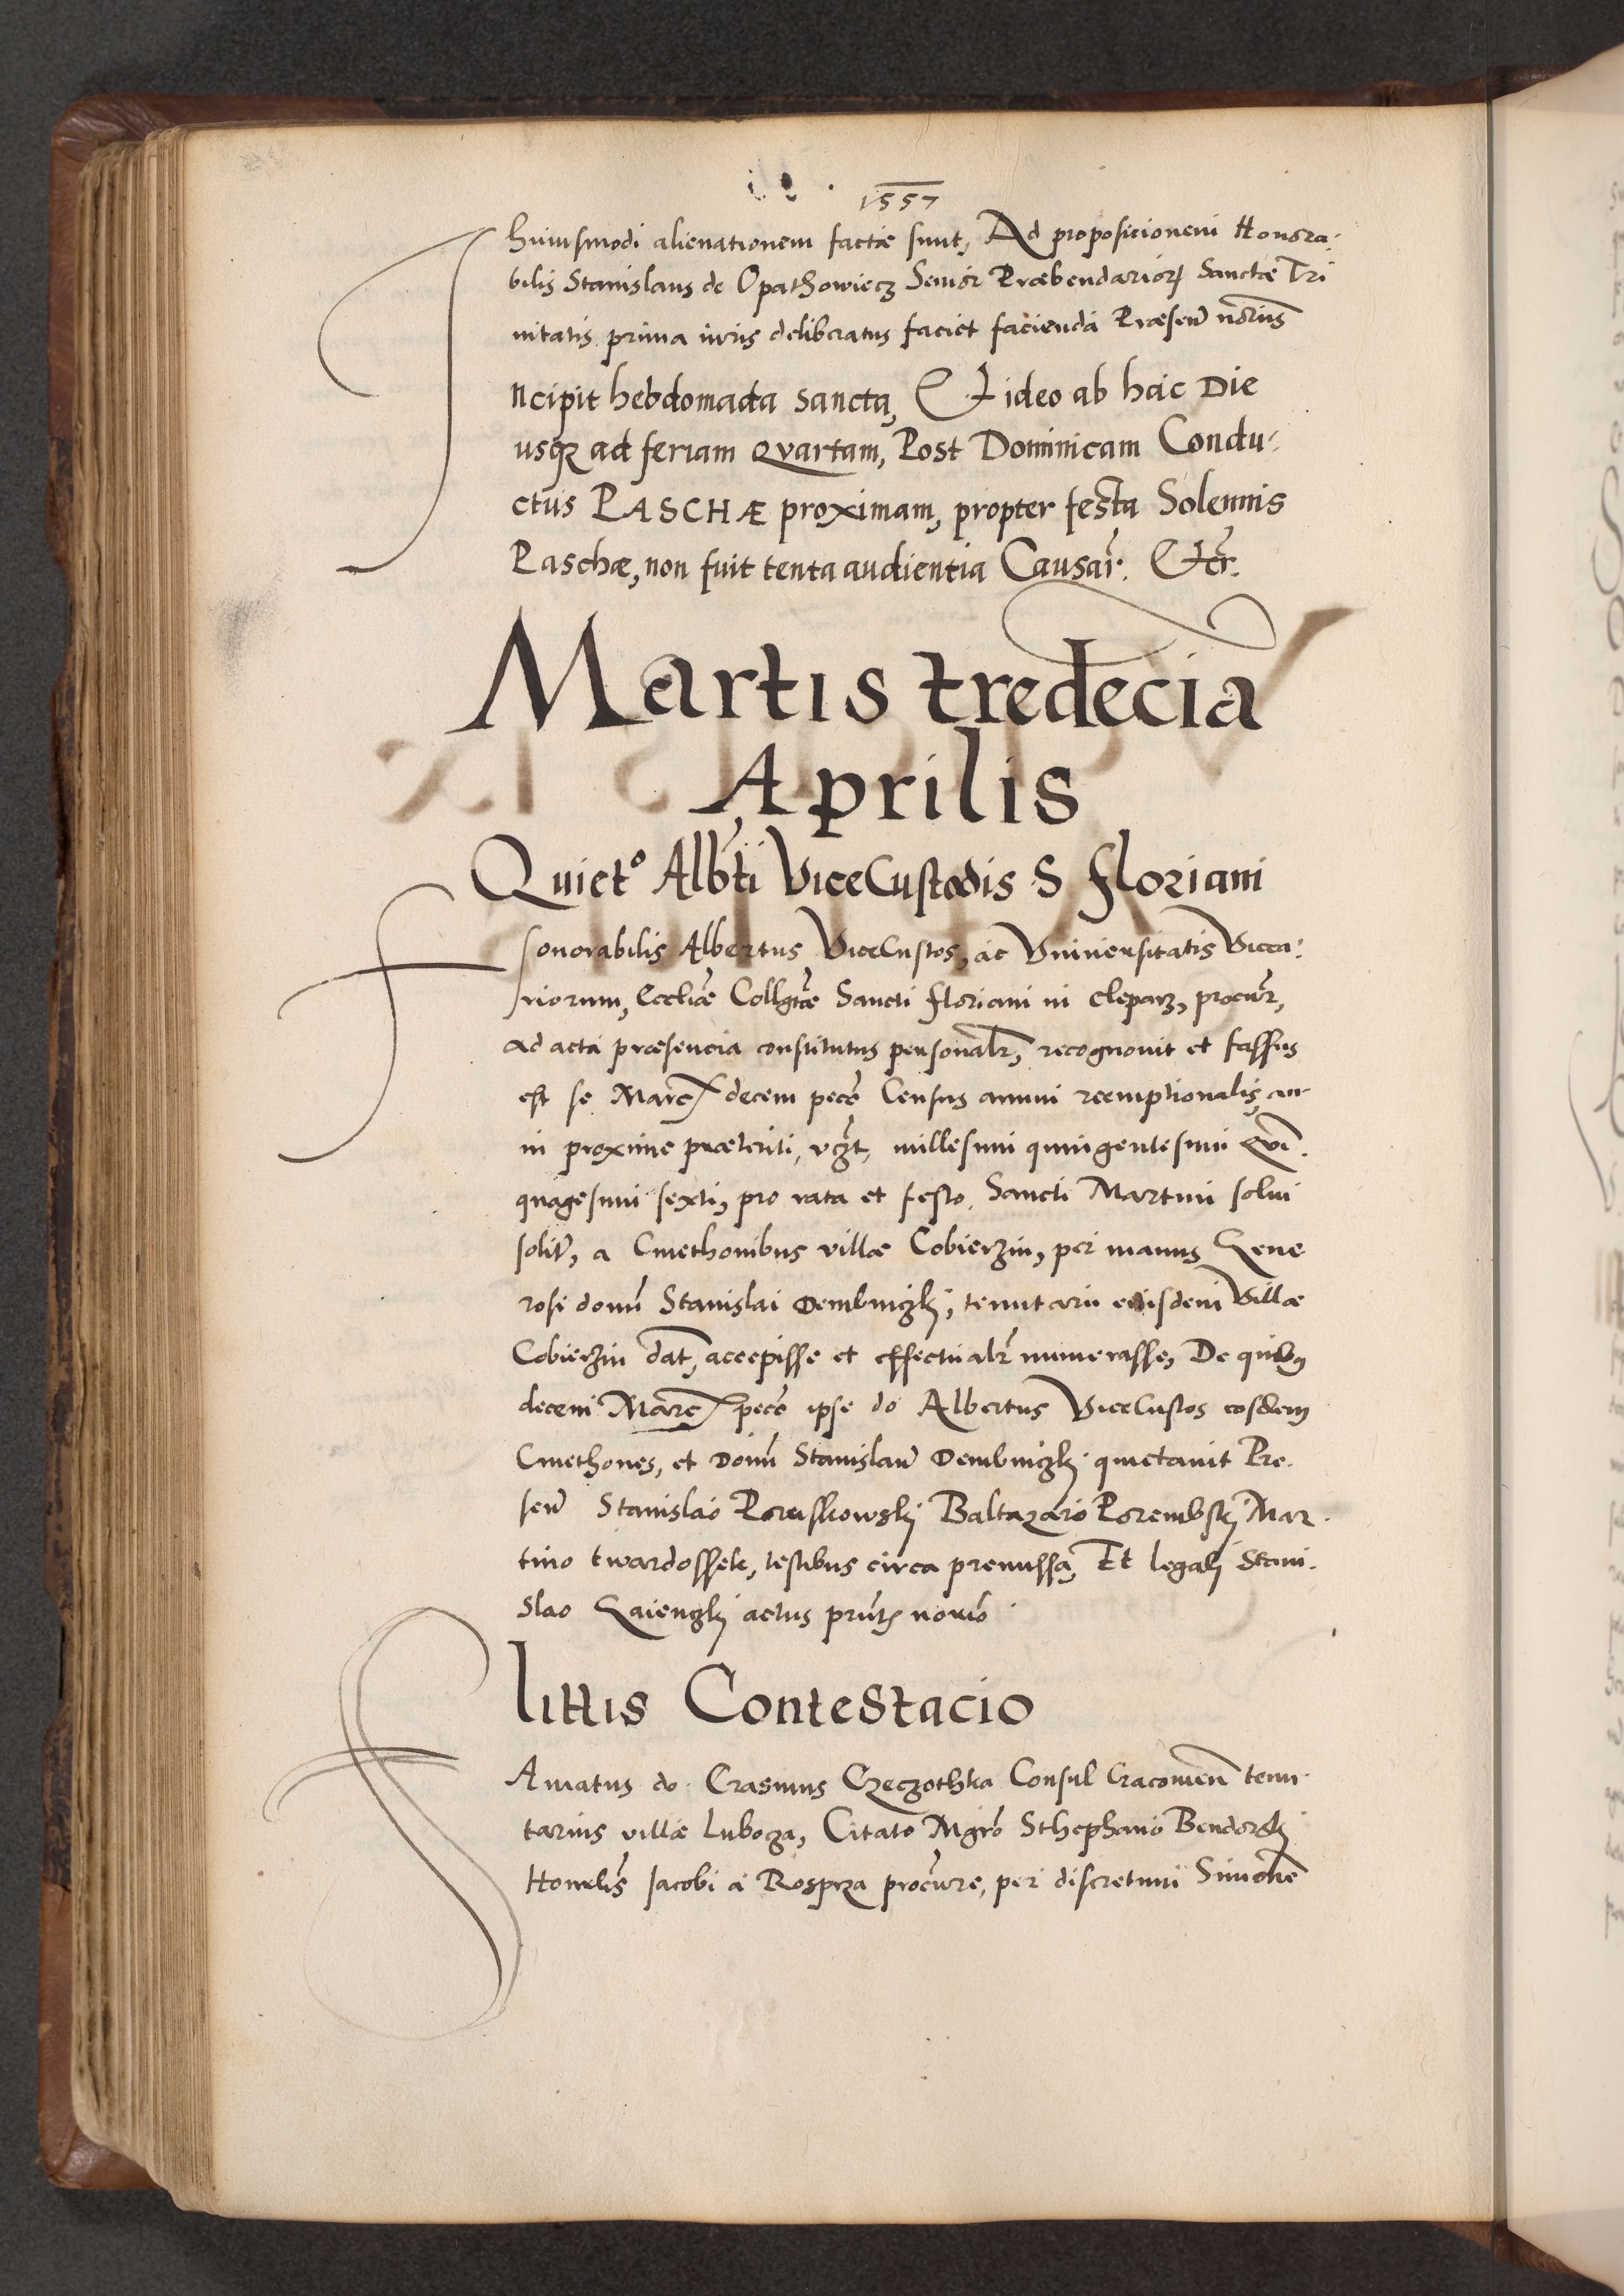 1557
huiusmodi alienationem factæ sunt, Ad proposicionem Honora-
bilis Stanislaus de Opathowiecz Senior Præbendarior Sanctæ Tri
nitatis prima iuris deliberatus faciet facienda Præsen notarius
Incipit hebdomada Sancta, Et ideo ab hac Die
usq ad feriam Qvartam, Post Dominicam Condu-
ctus PASCHÆ proximam, propter festa Solennis
Paschæ, non fuit tenta audientia Causar. Etcr.
Martis tredecia
Aprilis
Quiet° Albti ViceCustodis S Floriani
Honorabilis Albertus ViceCustos, ac Vniuersitatis Vicca-
riorum, Eccliæ Collgtæ Sancti Floriani in Cleparz, procur,
ad acta præsencia constitutus personalr, recognouit et fassus
est se Marc decem pece Census annui reemptionalis an-
ni proxime præteriti, vczt, millesimi quingentesimi Qvi-
quagesimi sexti, pro rata et festo Sancti Martini solui
solit, a Cmethonibus villæ Cobierzin, per manus Gene
rosi domi Stanislai Dembinszkj, tenutarii eiusdem Villæ
Cobierzin dat, accepisse et effectualr numerasse, De quibus
decem Marc pece ipse do Albertus ViceCustos eosdem
Cmethones, et Domi Stanislau Dembinszkj quietauit Pre-
sen Stanislao Baltazaro Porembskj Mar-
tino twardossek, testibus circa premissa, Et legalj Stani-
slao Gaienszkj actus prnt notario
littis Contestacio
Amatus do Erasmus Czeczothka Consul Cracouien tenu-
tarius villæ Lubocza, Citato Mgro Sthephano Bendorskj
Honrlis Jacobi a Rosprza procure, per discretum Simone